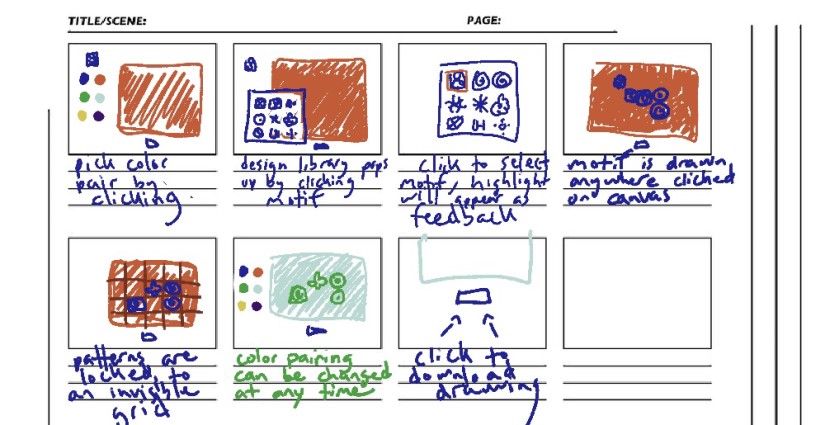 TITLE/SCENE:
PAGE:
pick color
pair by
clicking.
design library pops
up by clicking
motif
click to select
motif, highlight
will appear as
feedback
motif is drawn
anywhere clicked
on canvas
patterns are
locked to
an invisible
grid
color pairing
can be changed
at any time
click to
download
drawing